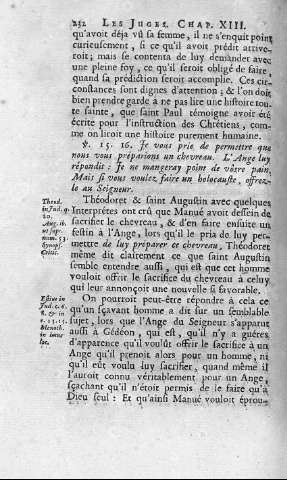 232 LES JUGES. CHAP. XIII.
qu'avoit déja vû sa femme, il ne s'enquit point
curieusement, si ce qu'il avoit prédit arrive-
roit; mais se contenta de luy demander avec
une pleine foy, ce qu'il seroit obligé de faire,
quand sa prédiction seroit accomplie. Ces cir-
constances sont dignes d'attention; & l'on doit
bien prendre garde à ne pas lire une histoire tou-
te sainte, que saint Paul témoigne avoir été
écrite pour l'instruction des Chrétiens, com-
me on liroit une histoire purement humaine.
℣. 15. 16. Je vous prie de permettre que
nous vous préparions un chevreau. L'Ange luy
répondit: Je ne mangeray point de vôtre pain,
Mais si vous voulez faire un holocauste, offrez-
le au Seigneur.
Theod.
in Jud. q.
20.
Aug. ib.
ut supr.
num. 53.
Synops.
Critic.
Théodoret & saint Augustin avec quelques
Interprétes ont crû que Manué avoit dessein de
sacrifier le chevreau, & d'en faire ensuite un
festin à l'Ange, lors qu'il le pria de luy per-
mettre de luy préparer ce chevreau, Théodoret
même dit clairement ce que saint Augustin
semble entendre aussi, qui est que cet homme
vouloit offrir le sacrifice du chevreau à celuy
qui leur annonçoit une nouvelle si favorable.
Estius in
Jud. c. 6.
8. & in
c. 13. 15.
Menoch.
in hunc
loc.
On pourroit peut-être répondre à cela ce
qu'un sçavant homme a dit sur un semblable
sujet, lors que l'Ange du Seigneur s'apparut
aussi à Gédéon, qui est, qu'il n'y a guéres
d'apparence qu'il voulût offrir le sacrifice à un
Ange qu'il prenoit alors pour un homme, ni
qu'il eût voulu luy sacrifier, quand même il
l'auroit connu véritablement pour un Ange,
sçachant qu'il n'étoit permis de le faire qu'à
Dieu seul: Et qu'ainsi Manué vouloit éprou-